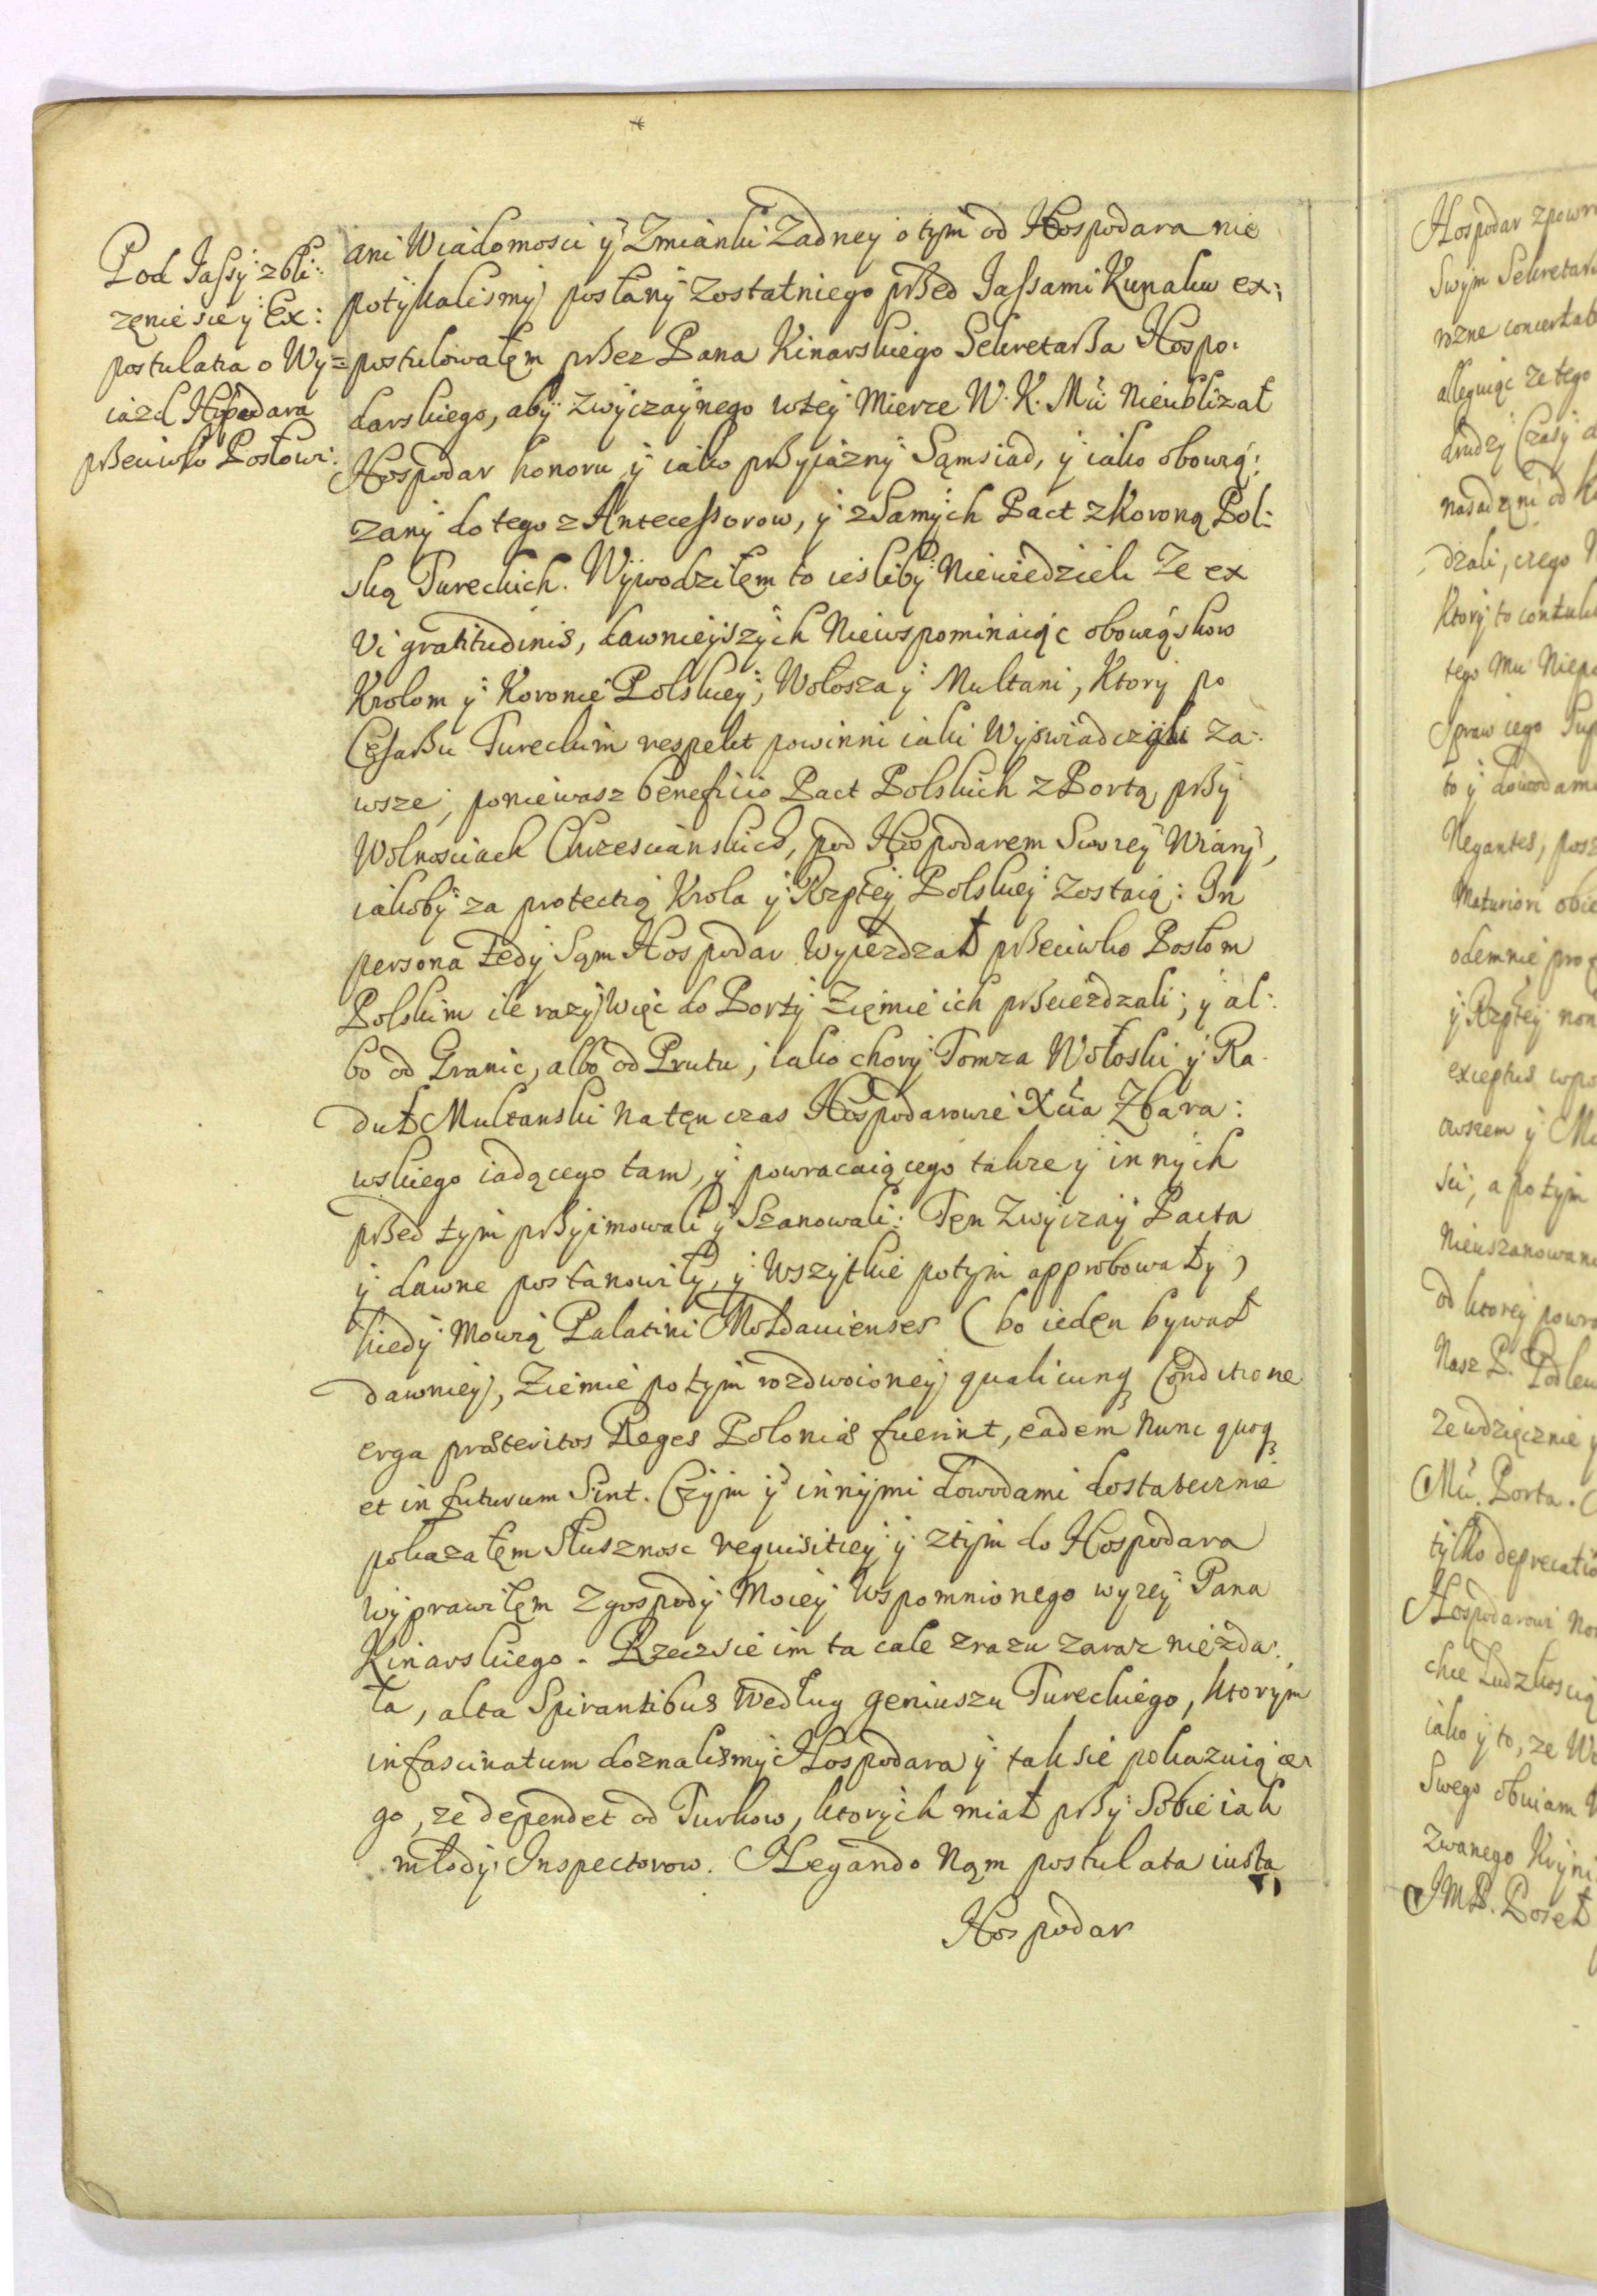 Pod Jassÿ zbli:
zęnie się ÿ Ex:
postulatia o Wy=
iazd Hospodara
przeciwko Posłowi.
ani Wiadomosci ÿ Zmianki Zadney o tÿm od Hospodara nie
potÿkalismÿ posłanÿ Zostatniego przed Jassami Kunaku ex:
postulowałęm przez Pana Kinarskiego Sekretarza Hospo:
darskiego, abÿ Zwÿczaÿnego wteÿ Mierze W. K. Mci Nieubliżał
Hospodar honoru ÿ iako przyiaznÿ Sąmsiad, ÿ iako obowią:
zanÿ do tego z Antecessorow, ÿ z Samÿch Pact z Koroną Pol:
ską Tureckich. Wÿwodziłęm to iesliby Niewiedzieli Ze ex
Vi gratitudinis, dawnieÿszÿch Niewspominaiąc obowiąskow
Krolom ÿ Koronie Polskieÿ, Wołosza ÿ Multani, Ktorÿ po
Cesarzu Tureckim respekt powinni iaki Wÿswiadczÿli Za:
wsze, poniewasz beneficio Pact Polskich z Portą przÿ
Wolnosciach Chrzescianskich, pod Hospodarem Sworeÿ Wiarÿ,
iakobÿ za protectią Krola ÿ Rzpłeÿ Polskieÿ Zostaią: In
persona tedÿ Sąm Hospodar Wyiezdzał przeciwko Posłom
Polskim ile razÿ Więc do Portÿ Zięmie ich przeiezdzali, ÿ al:
bo od Granic, albo od Prutu, iako chorÿ Tomza Wołoski ÿ Ra
duł Multanski na tęn czas Hospodarowie Xcia Zbara:
wskiego iadącego tam, ÿ powracaiącego takze ÿ innÿch
przed tÿm przÿimowali ÿ Szanowali: Tęn Zwÿczaÿ Pacta
ÿ dawne postanowiłÿ, ÿ Wszÿtkie potÿm approbowałÿ,
kiedÿ Mowią Palatini Moldauienses (bo ieden bywał
dawnieÿ, Ziemie potÿm rozdwoioneÿ) qualicunq Conditione
erga præteritos Reges Poloniæ fuerint, eadem Nunc quoq
et in futurum Sint. Czÿm ÿ innÿmi dowodami dostatecznie
pokazałęm Słusznosc requisitieÿ ÿ ztÿm do Hospodara
Wÿprawiłęm Zgospodÿ Moieÿ Wspomnionego wyzeÿ Pana
Kinarskiego. Rzecz sie im ta cale zrazu zaraz niezda:
ła, alta Spirantibus Według geniuszu Tureckiego, ktorym
infascinatum doznalismÿ Hospodara ÿ tak sie pokazuiące
go, ze dependet od Turkow, ktorÿch miał przÿ Sobie iak
młodÿ Inspectorow. Negando Nąm postulata iusta
Hospodar
Hospodar zpowr
Swÿm Sekretar
rozne concerta
alleguiąc Ze tego
drudzÿ Czasÿ d
nasadzęni od
dzali, czego
Ktorÿ to contul
tego Mu Niep
Spraw iego
to ÿ dowodami
Negantes, posz
Maturiori obie
odemnie pro
ÿ Rzpłeÿ non
exceptus
owszem ÿ
sci, a potÿm
Nieuszanowan
od ktoreÿ powro
Nasz P. Podlew
Ze wdzięcznie ÿ
Mci. Porta.
tÿlko deprecatio
Hospodarowi
chce Ludzkoscią
iako ÿ to, ze
Swego obuiam
Zwanego
JMP. Poseł